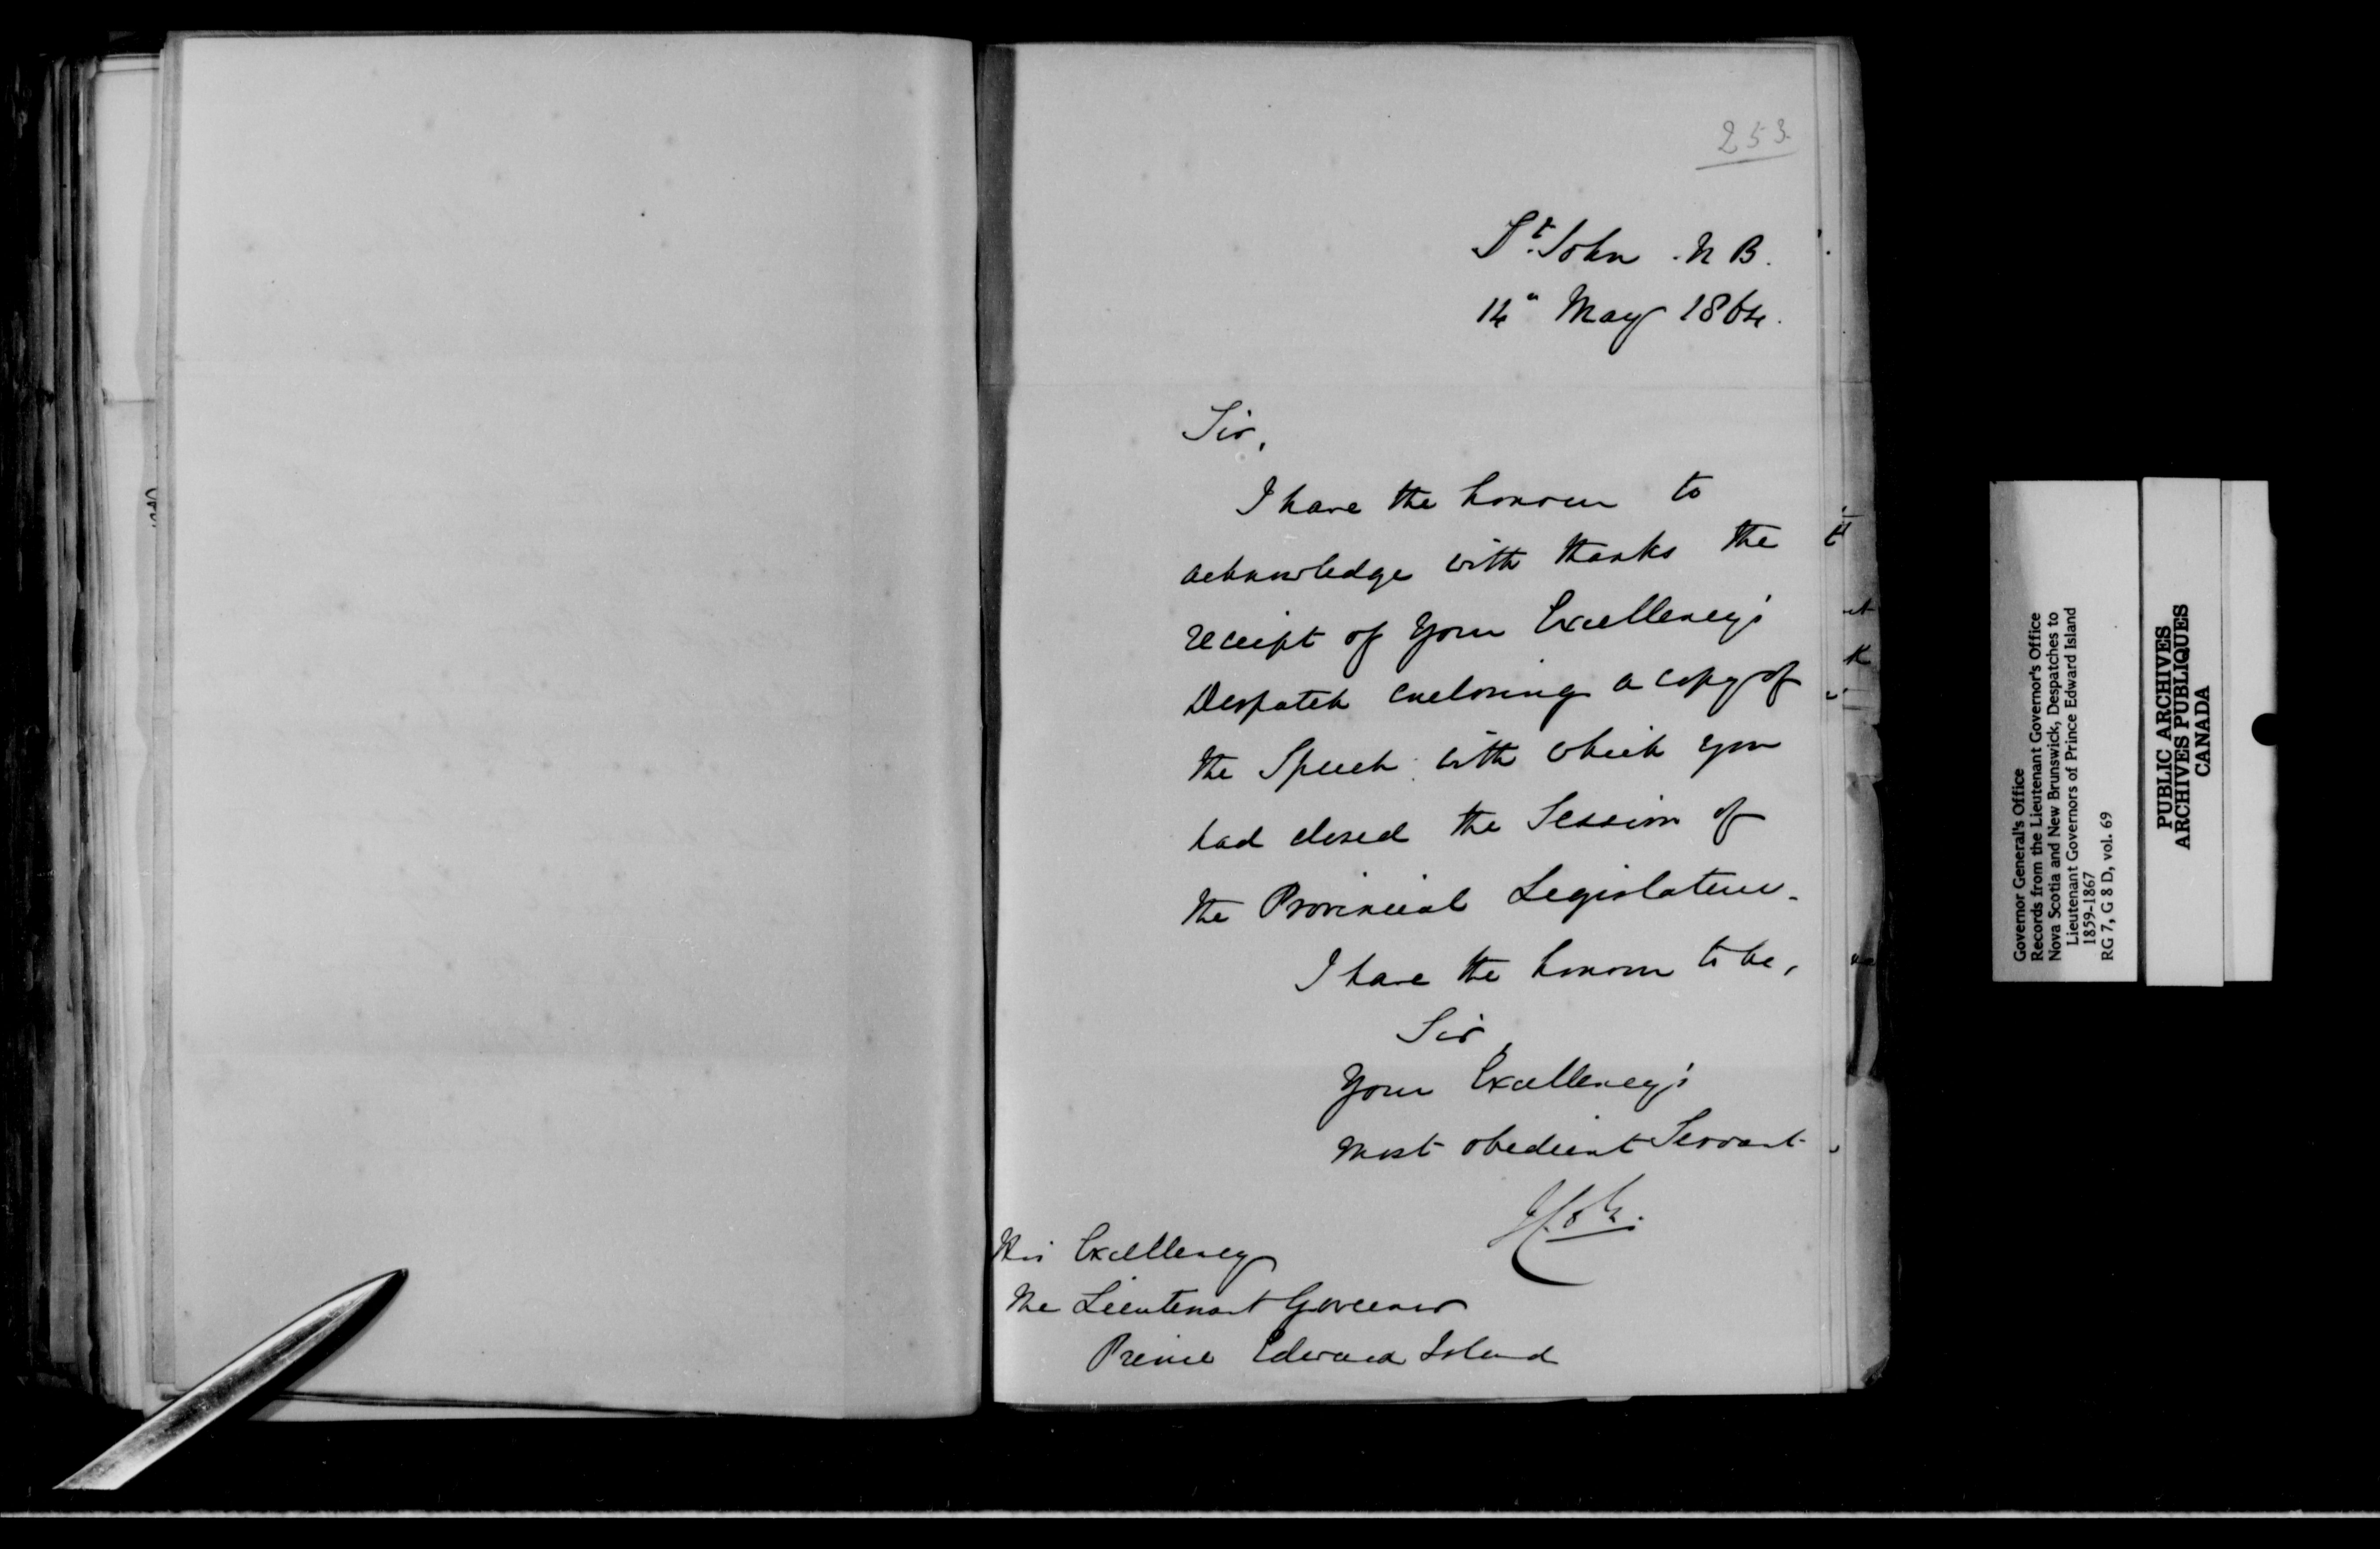 253.
St. John . N B.
14" May 1864.
Sir,
I have the honour to
acknowledge with thanks the
receipt of your Excellency's
Despatch enclosing a copy of
the Speech with which you
had closed the Session of
the Provincial Legislature.
I have the honour to be,
Sir,
Your Excellency's
most obedient Servant
His Excellency
The Lieutenant Governor
Prince Edward Island
Governor General's Office
Records from the Lieutenant Governor's Office
Nova Scotia and New Brunswick, Despatches to
Lieutenant Governors of Prince Edward Island
1859-1867
RG 7, G 8 D, vol. 69
PUBLIC ARCHIVES
ARCHIVES PUBLIQUES
CANADA